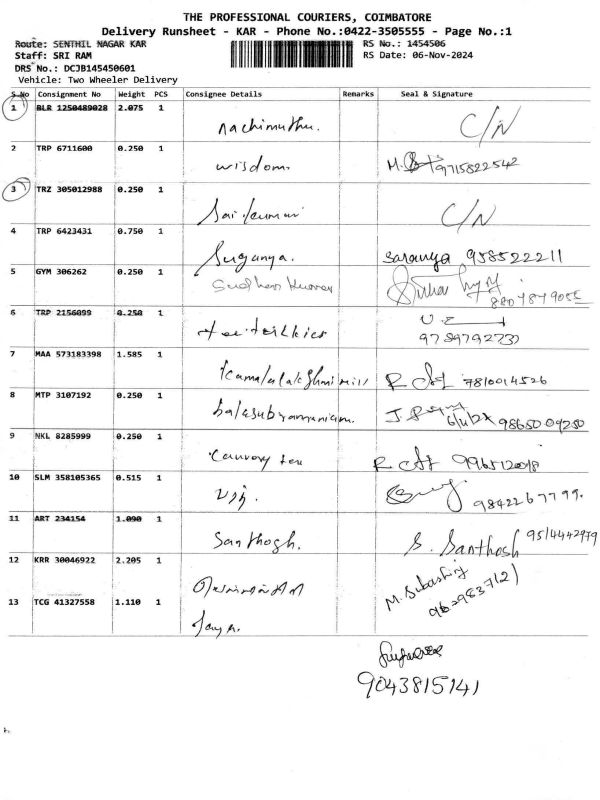 THE PROFESSIONAL COURIERS, COIMBATORE
Delivery Runsheet - KAR - Phone No.:0422-3505555 - Page No.:1
Route: SENTHIL NAGAR KAR
RS No.: 1454506
Staff: SRI RAM
RS Date: 06-Nov-2024
DRS No.: DCJB145450601
Vehicle: Two Wheeler Delivery
S.No Consignment No Weight PCS Consignee Details Remarks Seal & Signature
1 BLR 1250489028 2.075 1
Nachimuthu. C/N
2 TRP 6711600 0.250 1
wisdom. 9715822542
3 TRZ 305012988 0.250 1
Saikumar C/N
4 TRP 6423431 0.750 1
Suganya. Saranya 958522211
5 GYM 306262 0.250 1
8807879055
6 TRP 2156099 0.250 1
7 MAA 573183398 1.585 1
Kamalalakshmi mill 7810014526
8 MTP 3107192 0.250 1
balasubramaniam. 6/11/24 9865009250
9 NKL 8285999 0.250 1
10 SLM 358105365 0.515 1
9842267799.
11 ART 234154 1.090 1
Santhosh. S. Santhosh 9514442979
12 KRR 30046922 2.205 1
13 TCG 41327558 1.110 1
9043815141